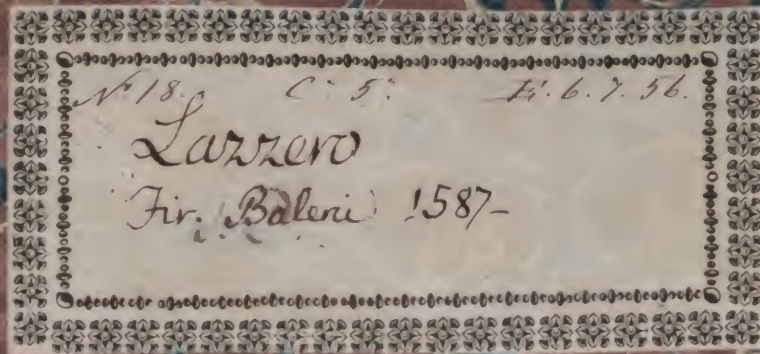 N° 18. C. 5. H. 6. 7. 56.
Lazzero
Fir. Baleni 1587-